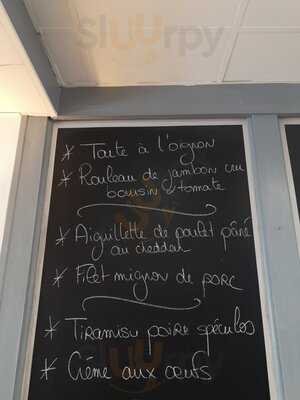 Sluurpy
* Tarte à l'oignon
* Rouleau de jambon cru
boursin & tomate
* Aiguillette de poulet pâné
au cheddar
* Filet mignon de porc
* Tiramisu poire spéculos
* Crème aux œufs